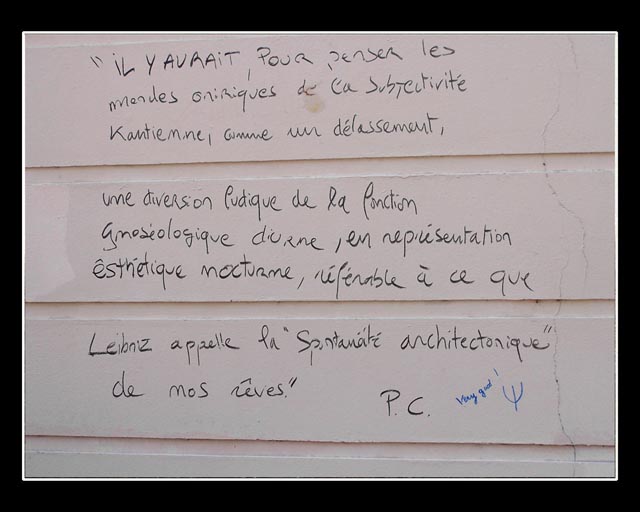 "iL Y AURAIT, POUR penser les
mondes oniriques de la Subjectivité
Kantienne, comme un délassement,
une diversion ludique de la fonction
Gnoséologique diurne, en représentation
ésthétique nocturne, référable à ce que
Leibniz appelle la "Spontanéité architectonique"
de nos rêves."
P.C.
Very good!
Ψ